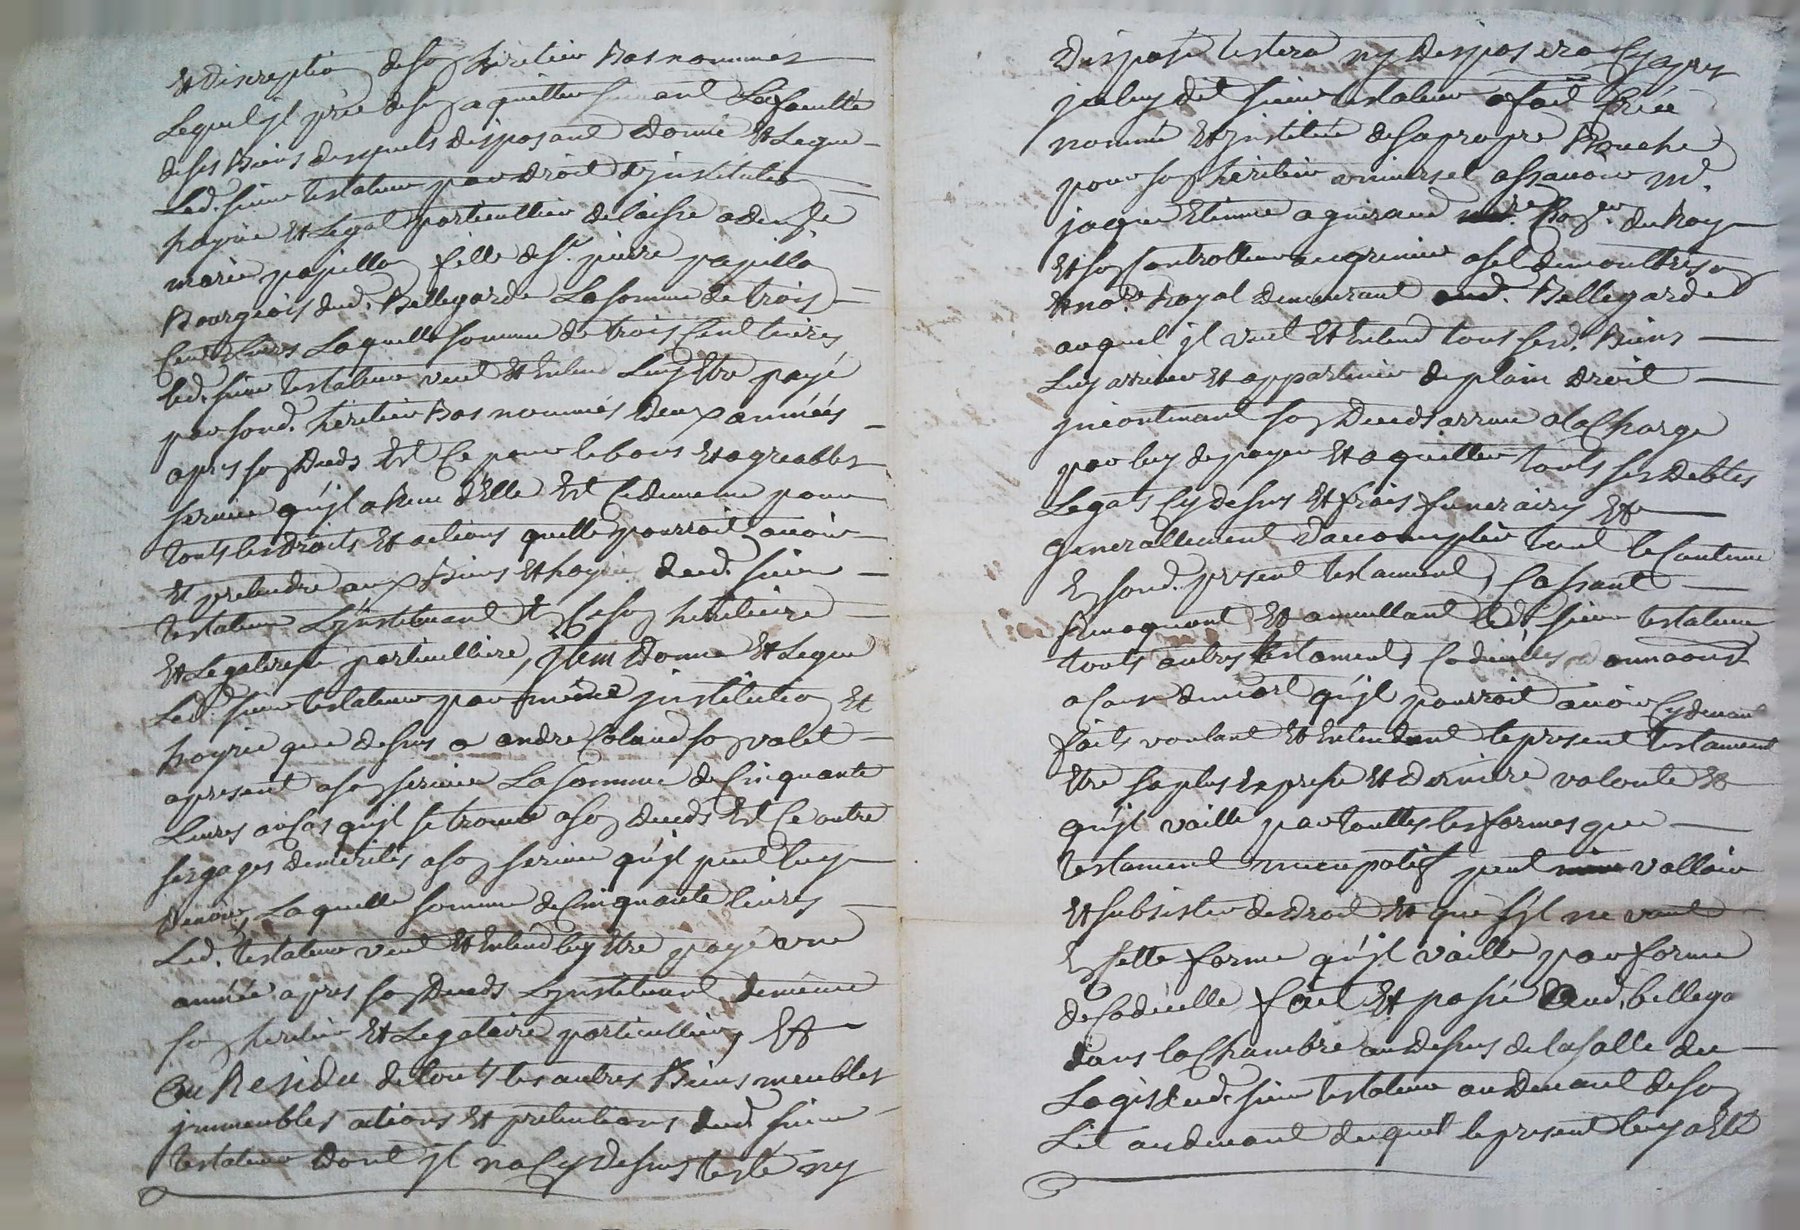 Et discreption de son heritier bas nommés
Lequel jl prie de sy aquitter suivant La faculté
de ses Biens desquels disposant donne Et Legue
Led. sieur testateur par droit d'institution
hoyrie Et Legat particullier delaisse a den.lle
marie papillon fille de Sr. pierre papillon
Bourgeois dud. Bellegarde La somme de trois
Cent Livres Laquelle somme de trois Cent livres
led. sieur testateur veut Et Entend Luy Etre payé
par sond. heritier Bas nommés deux années
apres son Deceds Et Ce pour les bons Et agreables
service qu'jl a Receu d'Elle Et Ce demeure pour
touts les droits Et actions quelle pourroit avoir
Et pretendre aux Biens Et hoyrie dud. sieur
testateur L'jnstituant Et Ce son heritiere
Et Legataresse particulliere, jtem Donne Et Legue
Led. sieur testateur par même jnstitution Et
hoyrie que desus a andre Coland son valet
apresent a son service La somme de Cinquante
Livres au cas qu'jl se trouve a son deceds Et Ce outre
ses gages de merites a son service qu'jl peut luy
Devoir, Laquelle somme de Cinquante livres
Led. testateur veut Et Entend luy Etre payé une
année apres son Deceds L'jnstituant de même
son heritier Et Legataire particullier, Et
Au Residu de touts les autres Biens meubles
jmmeubles actions Et pretentions dud. sieur
testateur Dont jl na Cy desus testé ny
disposé testera ny disposera Cy apres
jceluy dit sieur testateur a fait Créé
nommé Et jnstitué de sa propre Bouche
pour son heritier universel assavoir Mr.
jaque Etienne aguiraud Con.er du Roy
Et son Controlleur au grenier a sel de montbrison
Et no.re Royal demeurant aud. Bellegarde
auquel jl veut Et Entend tous sesd. Biens
Luy arriver Et appartenir de plain droit
jncontinant son Deceds arrivé a la Charge
par luy de payer Et aquitter touts ses Debtes
Legats Cy desus Et frais funeraires Et
generallement d'accomplir tout le Contenu
En sond. present testament, Cassant
Revoquant Et annullant led. sieur testateur
touts autres testaments Codicilles donnaons
a Cause de mort qu'jl pourroit avoir Cy devant
faits voulant Et Entendant le present testament
Etre sa plus Expresse Et derniere volonté Et
qu'jl vaille par touttes les formes que
testament nuncupatif peut valloir
Et subsister de droit Et que s'jl ne vaut
En sette forme qu'jl vaille par forme
de Codicille fait Et passé aud. bellega
dans la Chambre au desus de la salle du
Logis dud. sieur testateur au devant de son
Lit au devant duquel le present luy a Eté